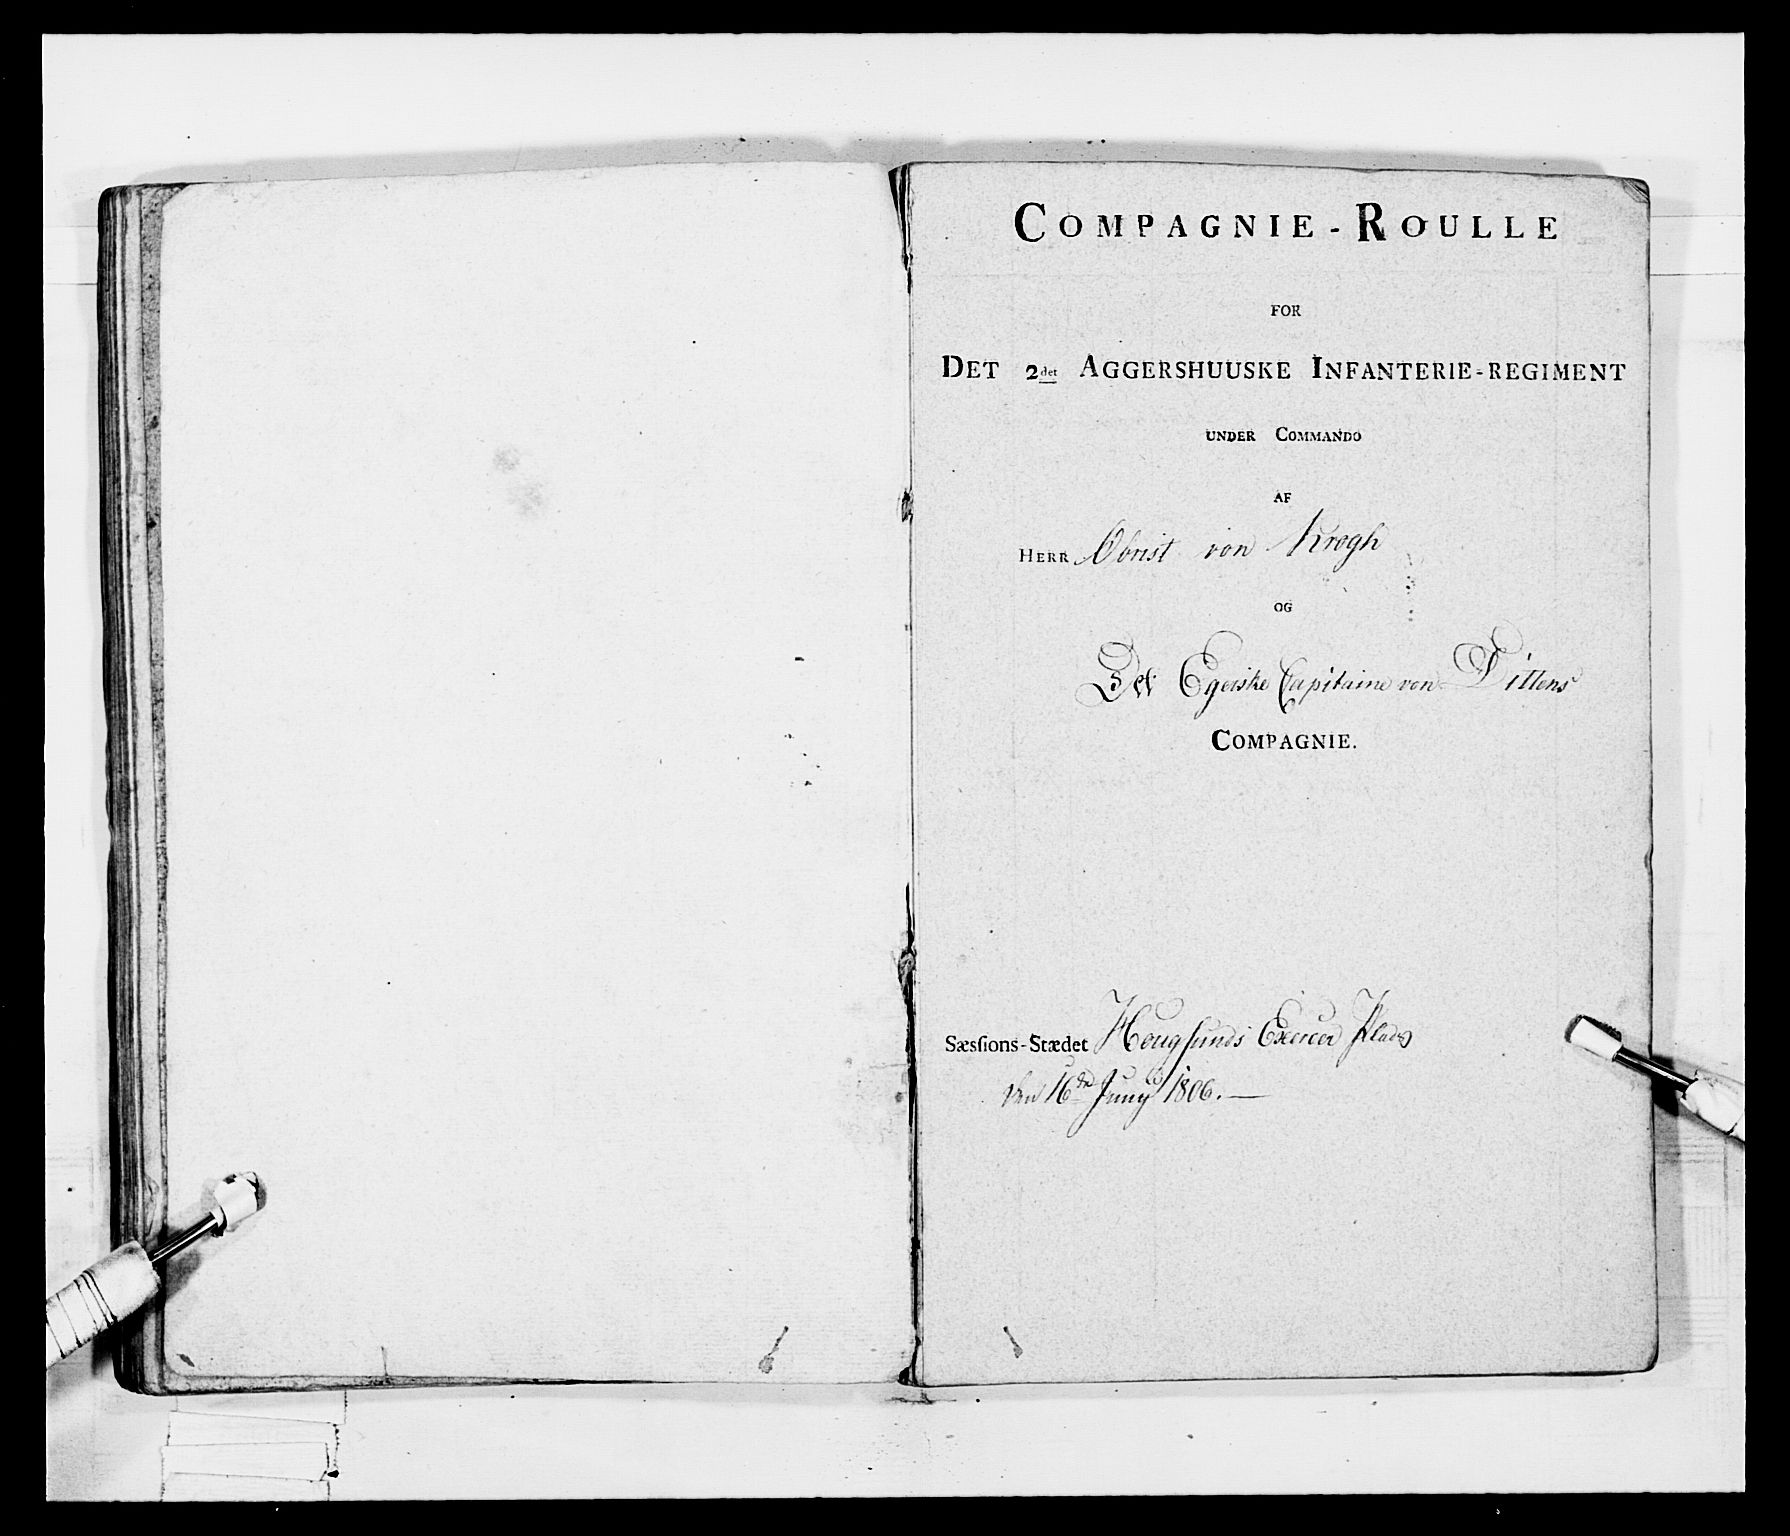 COMPAGNIE-ROULLE
FOR
DET 2det AGGERSHUUSKE INFANTERIE-REGIMENT
UNDER COMMANDO
AF
HERR Obrist von Krogh
OG
Det Egerske Capitaine von Dittens
COMPAGNIE.
Sæsſions-Stædet Hougsunds Exerceer Plads
den 16de Juny 1806.